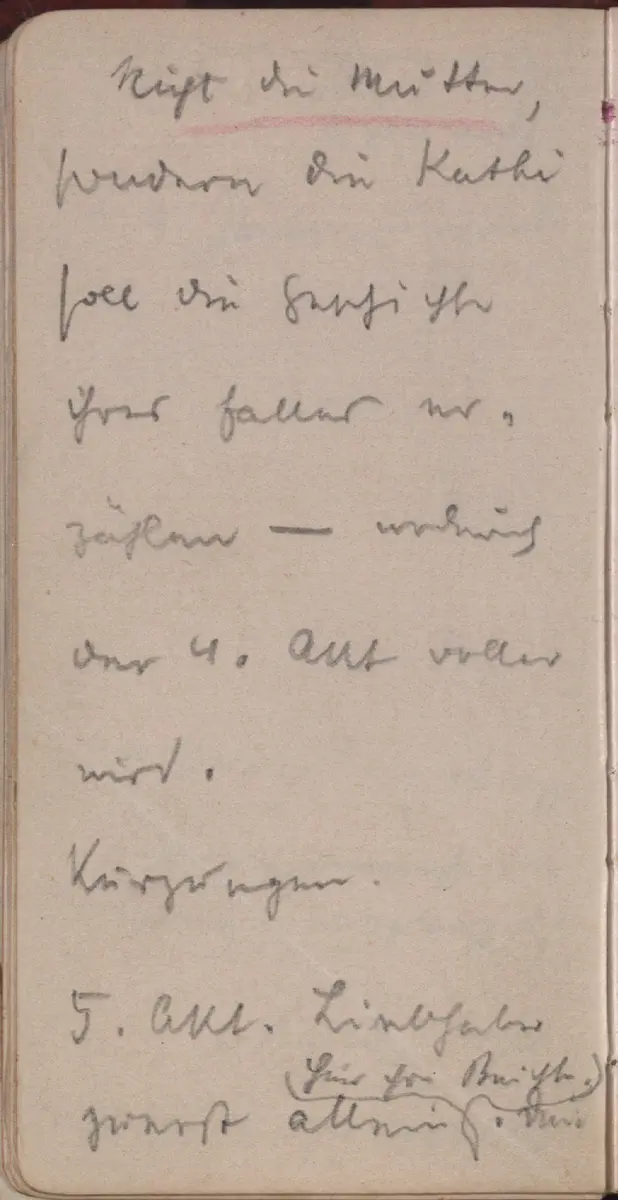 Nicht die Mutter,
sondern die Kathi
soll die Geschichte
ihres Falles er-
zählen — wodurch
der 4. Akt voller
wird.
Kürzungen.
5. Akt. Liebhaber
(hier Beichte.)
zuerst allein. Die